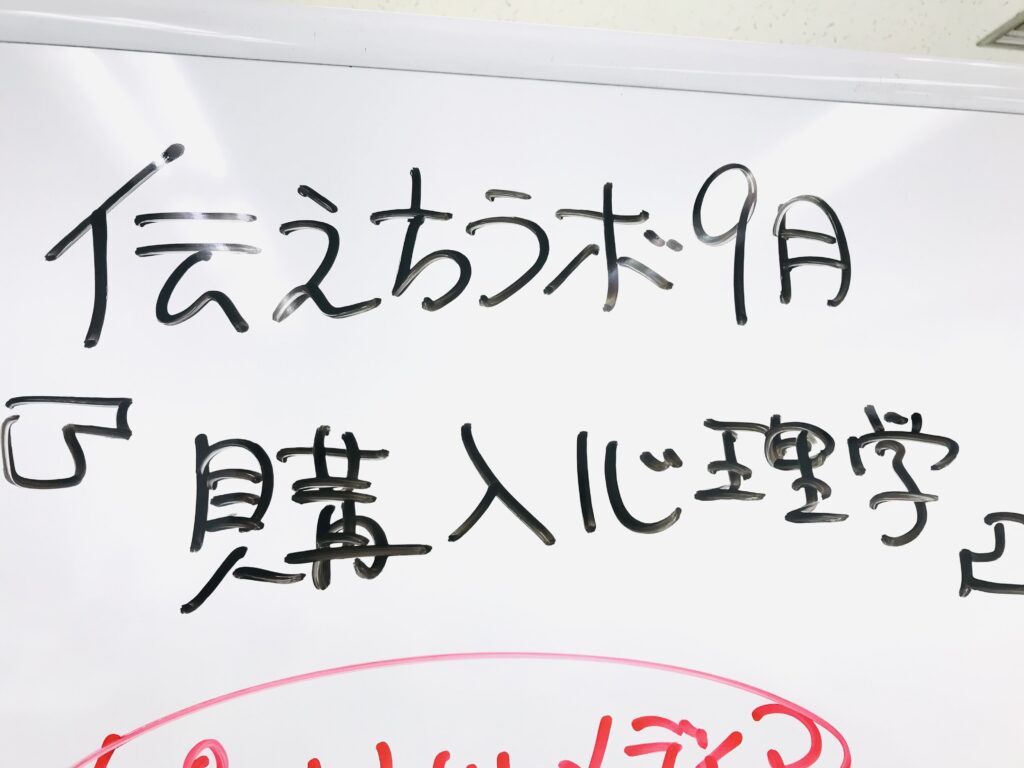 伝えちラボ9月
『購入心理学』